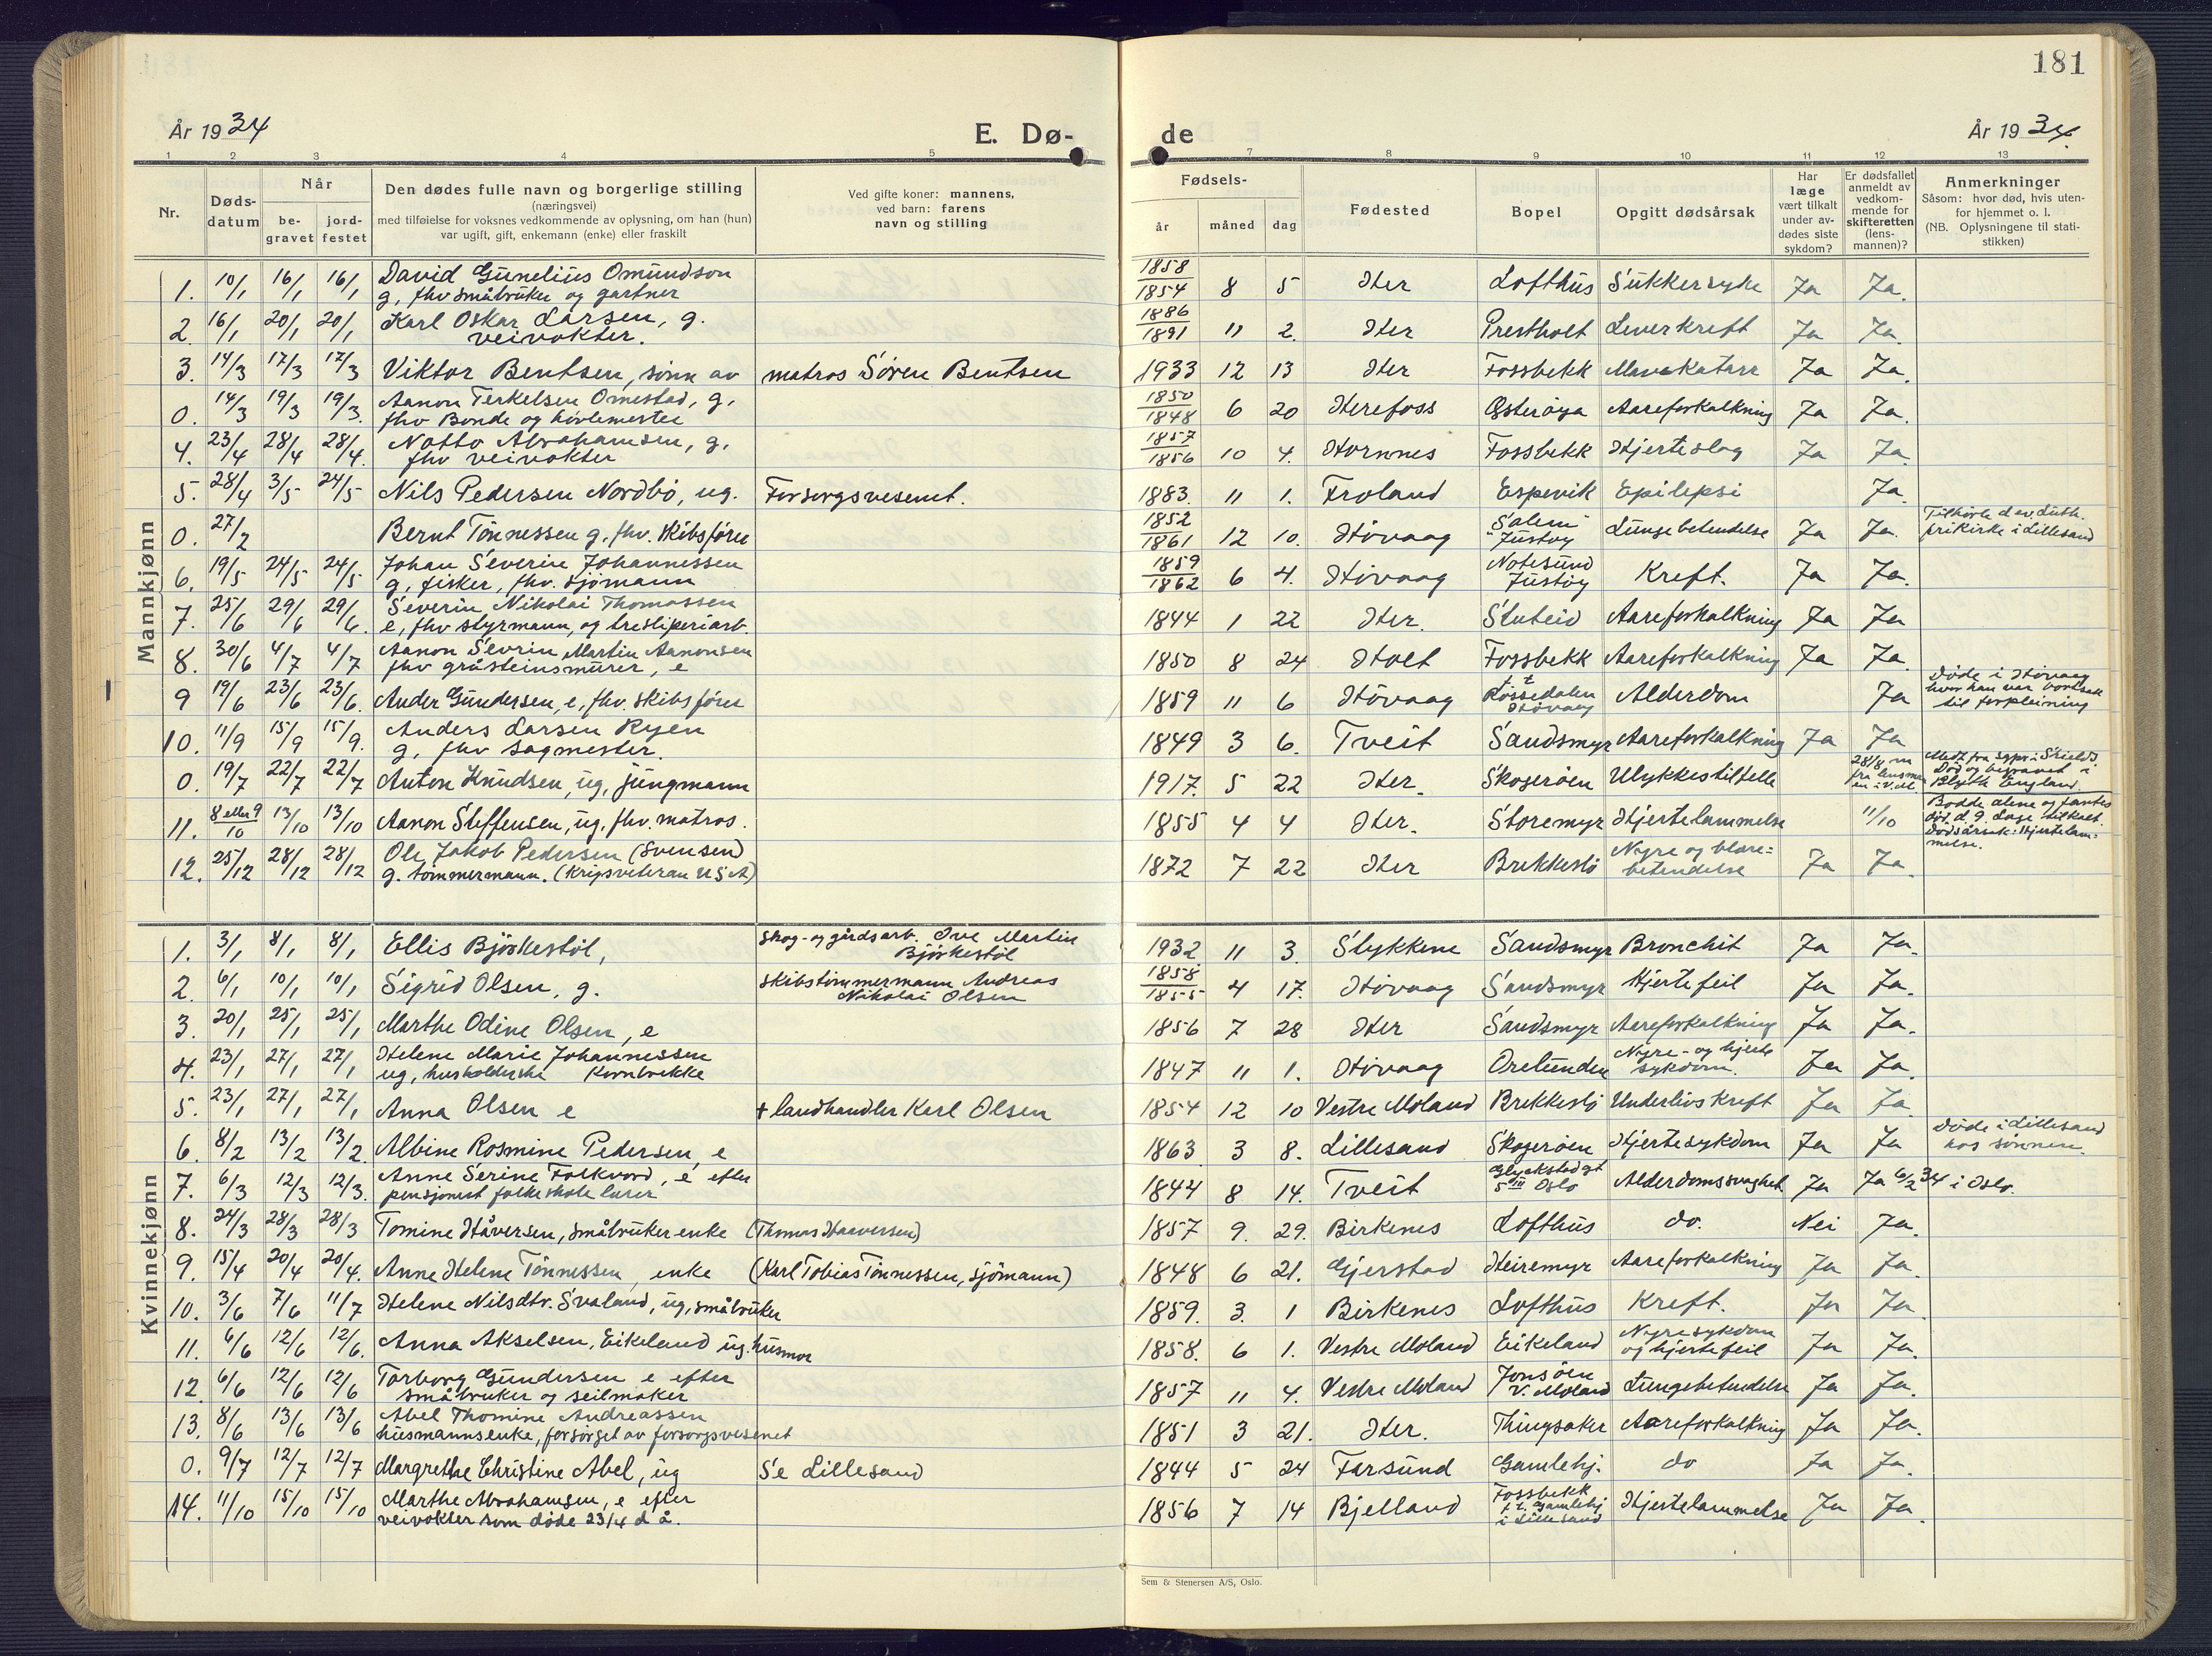 181
År 1934
E. Dø-
de
År 1934.
1 2 3 4 5 7 8 9 10 11 12 13
Nr.
Døds-
datum
Når
be-
gravet
jord-
festet
Den dødes fulle navn og borgerlige stilling
(næringsvei)
med tilføielse for voksnes vedkommende av oplysning, om han (hun)
var ugift, gift, enkemann (enke) eller fraskilt
Ved gifte koner: mannens,
ved barn: farens
navn og stilling
Fødsels-
år
måned
dag
Fødested
Bopel
Opgitt dødsårsak
Har
læge
vært tilkalt
under av-
dødes siste
sykdom?
Er dødsfallet
anmeldt av
vedkom-
mende for
skifteretten
(lens-
mannen)?
Anmerkninger
Såsom: hvor død, hvis uten-
for hjemmet o. l.
(NB. Oplysningene til stati-
stikken)
Mannkjønn
1. 10/1 16/1 16/1 David Gunelius Omundson
g, fhv småbruker og gartner
1858
1854 8 5 Her Lofthus Sukkersyke Ja Ja.
2. 16/1 20/1 20/1 Karl Oskar Larsen, g.
veivokter.
1886
1891 11 2. Her Prestholt Leverkreft Ja Ja.
3. 14/3 17/3 17/3 Viktor Bentsen, sønn av matros Søren Bentsen 1933 12 13 Her Fossbekk Mavekatarr Ja Ja.
0. 14/3 19/3 19/3. Aanon Terkelsen Omestad, g,
fhv Bonde og høvlemester
1850
1848 6 20 Herefoss Østerøya Aareforkalkning Ja Ja.
4. 23/4 28/4 28/4. Notto Abrahamsen, g,
fhv veivokter
1857
1856 10 4. Hornnes Fossbekk Hjerteslag Ja Ja.
5. 28/4 3/5 24/5 Nils Pedersen Nordbø, ug. Forsorgsvesenet. 1883. 11 1. Froland Espevik Epilepsi Ja.
0. 27/2 Bernt Tønnessen g, fhv. skibsfører
1852
1861 12 10. Høvaag "Salem"
Justøy Lungebetendelse Ja Ja. Tilhørte d ev. Luth.
frikirke i Lillesand
6. 19/5 24/5 24/5 Johan Severin Johannessen
g, fisker, fhv. sjømann
1859
1862 6 4. Høvaag Notesund
Justøy Kreft. Ja Ja.
7. 25/6 29/6 29/6. Severin Nikolai Thomassen
e, fhv styrmann, og tresliperiarb. 1844 1 22 Her. Stuteid Aareforkalkning Ja Ja
8. 30/6 4/7 4/7 Aanon Sevrin Martin Aanonsen
fhv gråsteinsmurer, e 1850 8 24 Holt Fossbekk Aareforkalkning Ja Ja.
9 19/6 23/6 23/6. Ander Gundersen, e, fhv. skibsfører 1859 11 6 Høvaag t t
Høvaag Alderdom Ja Døde i Høvaag
hvor han var bortsatt
til forpleining
10. 11/9 15/9 15/9. Anders Larsen Ryen
g, fhv sagmester. 1849 3 6. Tveit Sandsmyr Aareforkalkning Ja Ja
0. 19/7 22/7 22/7 Anton Knudsen, ug, jungmann 1917. 5 22 Her. Skogerøen Ulykkestilfelle
Død og begravet i
Blyth England.
11. 8 eller 9/10 13/10 13/10 Aanon Steffensen, ug, fhv. matros. 1855 4 4 Her. Storemyr Hjertelammelse 11/10 Bodde alene og fantes
død d. 9. Læge tilkalt.
Dødsårsak: Hjertelam-
melse.
12. 25/12 28/12 28/12 Ole Jakob Pedersen (Svensen)
g. tømmermann. (Krigsveteran USA) 1872 7 22 Her Brekkestø Nyre og blære-
betendelse Ja Ja.
Kvinnekjønn
1. 3/1 8/1 8/1 Ellis Bjørkestøl, Skog- og gårdsarb. Ove Martin
Bjørkestøl 1932 11 3 Stykkene Sandsmyr Bronchit Ja Ja.
2. 6/1 10/1 10/1 Sigrid Olsen, g. skibstømmermann Andreas
Nikolai Olsen
1858.
1855 4 17. Høvaag Sandsmyr Hjertefeil Ja Ja.
3. 20/1 25/1 25/1 Marthe Odine Olsen, e 1856 7 28 Her Sandsmyr Aareforkalkning Ja Ja.
4. 23/1 27/1 27/1 Helene Marie Johannessen
ug, husholderske Kornbrekke 1847 11 1. Høvaag Orelunden Nyre- og hjerte
sykdom. Ja Ja.
5. 23/1 27/1 27/1 Anna Olsen e + landhandler Karl Olsen 1854 12 10 Vestre Moland Brekkestø Underlivskreft Ja Ja.
6. 8/2 13/2 13/2 Albine Rosmine Pedersen, e 1863 3 8. Lillesand Skogerøen Hjertesykdom Ja Ja Døde i Lillesand
hos sønnen.
7. 6/3 12/3 12/3. Anne Serine Folkvord, e efter
pensjonert folkeskolelærer 1844 8 14. Tveit Glückstadgt
5 III Oslo Alderdomssvaghet Ja Ja 6/2 34 i Oslo.
8. 24/3 28/3 28/3 Tomine Håversen, småbruker enke (Thomas Haaversen) 1857 9. 29. Birkenes Lofthus do. Nei Ja.
9. 15/4 20/4 20/4. Anne Helene Tønnessen, enke (Karl Tobias Tønnessen, sjømann) 1848 6 21. Gjerstad Heiremyr Aareforkalkning Ja Ja.
10. 3/6 7/6 11/7 Helene Nilsdtr. Svaland, ug, småbruker 1859. 3. 1 Birkenes Lofthus Kreft. Ja Ja.
11. 6/6 12/6 12/6. Anna Akselsen, Eikeland ug. husmor 1858. 6 1. Vestre Moland Eikeland Nyresykdom
og hjertefeil Ja Ja.
12 6/6 12/6 12/6 Torborg Gundersen e efter
småbruker og seilmaker 1857 11 4. Vestre Moland Jonsøen
V. Moland Lungebetendelse Ja Ja.
13. 8/6 13/6 13/6 Abel Thomine Andreassen
husmannsenke, forsørget av forsorgsvesenet 1851 3 21. Her. Thingsaker Aareforkalkning Ja Ja.
0. 9/7 12/7 12/7 Margrethe Christine Abel, ug Se Lillesand 1844 5 24 Farsund Gamlehj. do Ja Ja.
14. 11/10 15/10 15/10 Marthe Abrahamsen, e efter
veivokter som døde 23/4 d å. 1856 7 14 Bjelland Fossbekk
f. t. Gamlehj
i Lillesand Hjertelammelse Ja Ja.
Sem & Stenersen A/S, Oslo.